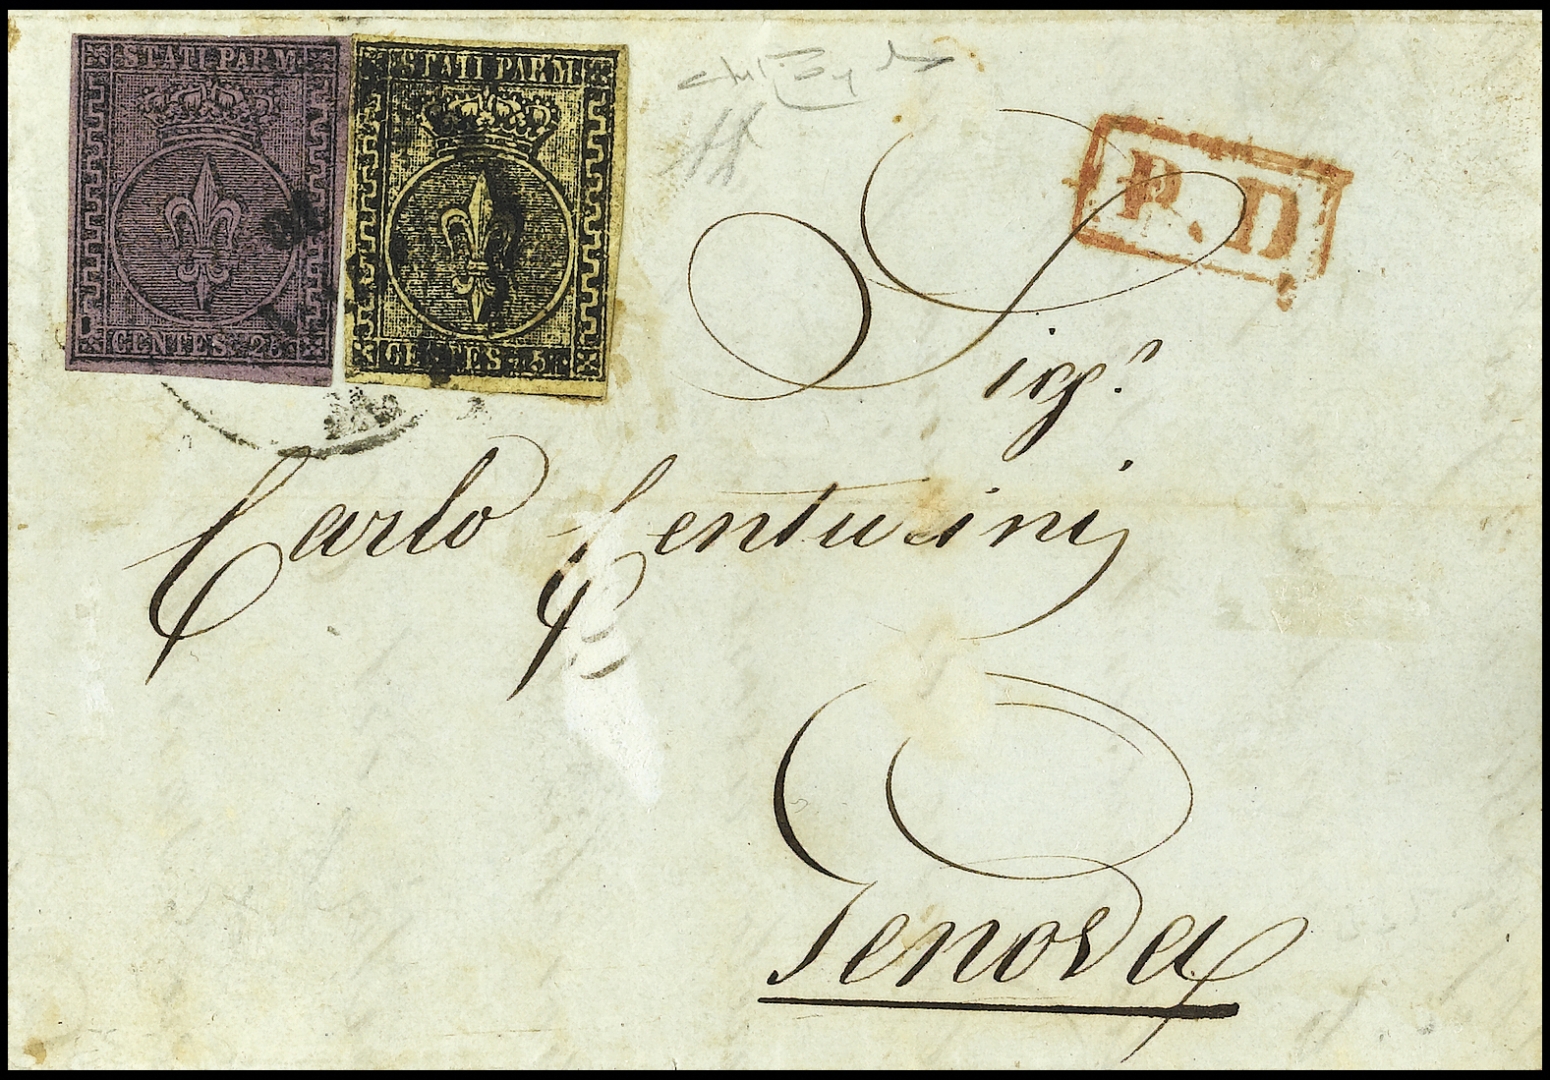 STATI PARM.
CENTES. 25
STATI PARM.
CENTES. 5
P.D
Sig.r
Carlo Centurini
Genova